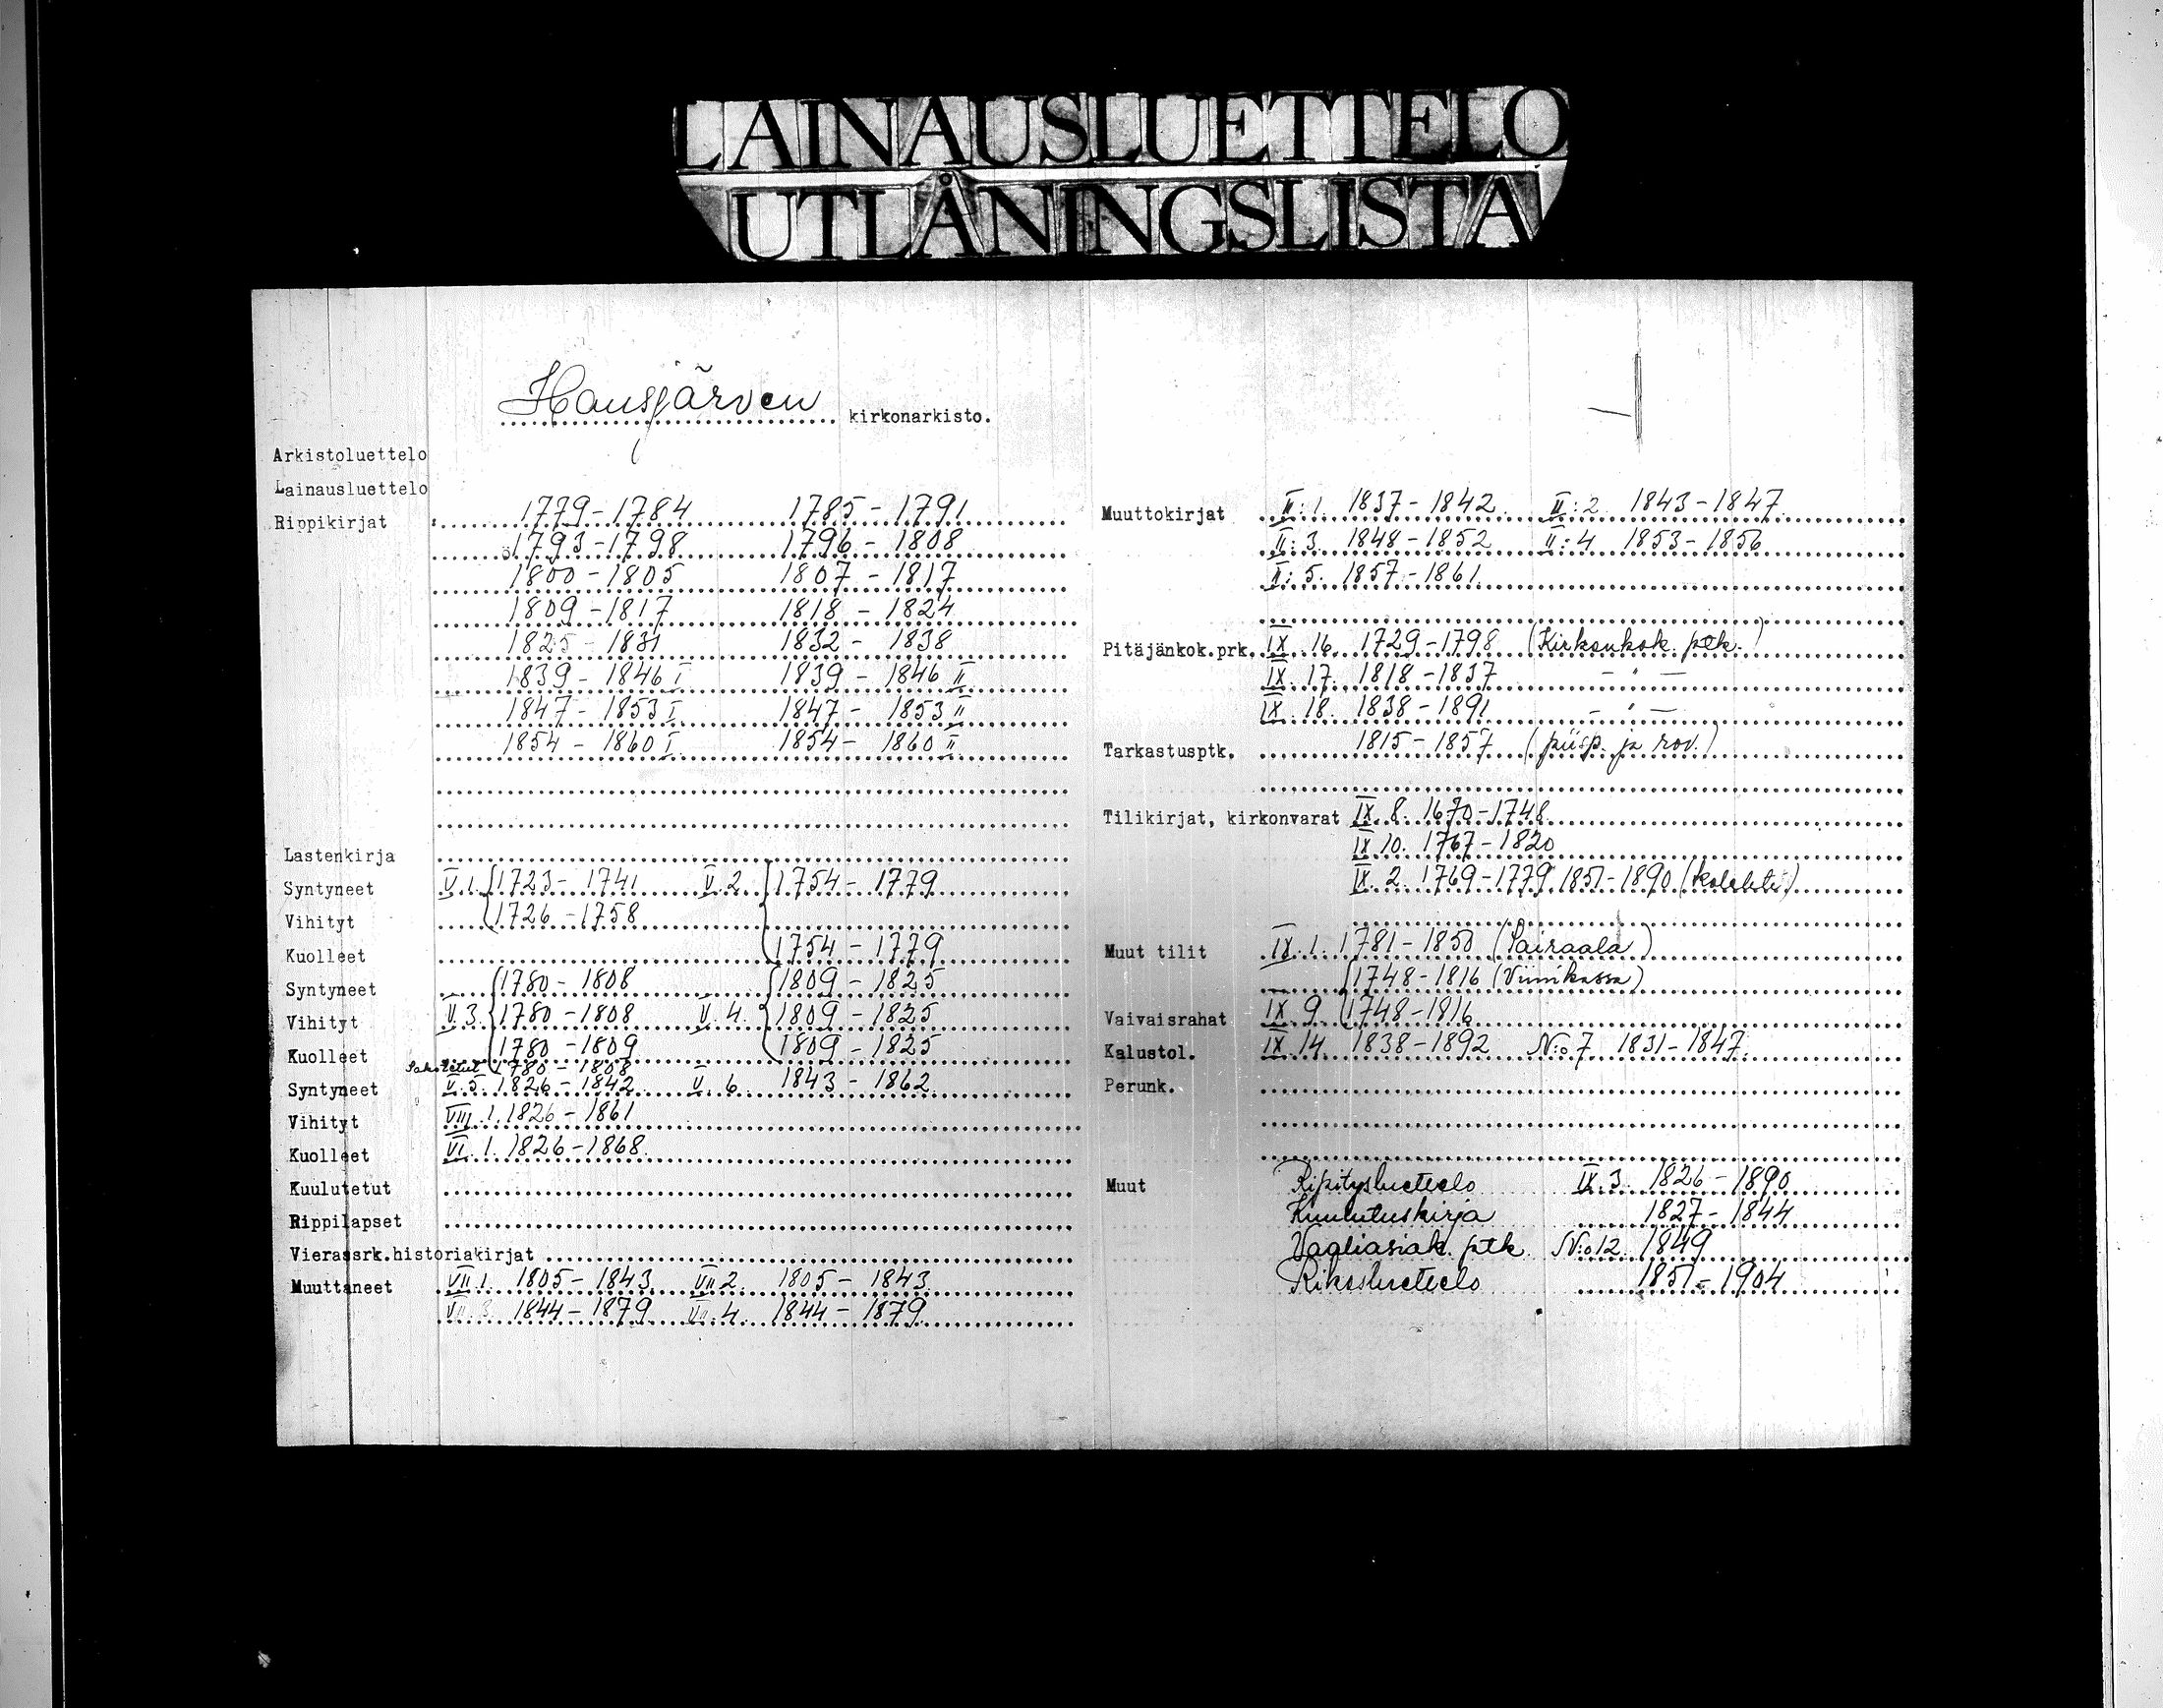 LAINAUSLUETTELO
UTLÅNINGSLISTA
Hausjärven kirkonarkisto.
Arkistoluettelo
Lainausluettelo
Rippikirjat 1779-1784 1785-1791
1793-1798 1796-1808
1800-1805 1807-1817
1809-1817 1818-1824
1825-1831 1832-1838
1839-1846 I 1839-1846 II
1847-1853 I 1847-1853 II
1854-1860 I 1854-1860 II
Lastenkirja
Syntyneet V.1. 1723-1741 V.2. 1754-1779
Vihityt 1726-1758
Kuolleet 1754-1779
Syntyneet 1780-1808 1809-1825
Vihityt V.3. 1780-1808 V.4. 1809-1825
Kuolleet 1780-1809 1809-1825
1780-1808
Syntyneet V.5. 1826-1842 V.6. 1843-1862
Vihityt VIII.1. 1826-1861
Kuolleet VI.1. 1826-1868
Kuulutetut
Rippilapset
Vierassrk.historiakirjat
Muuttaneet VII.1. 1805-1843 VII.2. 1805-1843
VII.3. 1844-1879 VII.4. 1844-1879
Muuttokirjat II:1. 1837-1842 II:2 1843-1847
II:3. 1848-1852 II:4 1853-1856
II:5. 1857-1861
Pitäjänkok.prk. IX.16. 1729-1798 (Kirkonkok. ptk.)
IX.17. 1818-1837 - " -
IX.18. 1838-1891 - " -
Tarkastusptk. 1815-1857 (piisp. ja rov.)
Tilikirjat, kirkonvarat IX.8. 1670-1748
IX 10. 1767-1820
IX.2. 1769-1779, 1851-1890 (kolehti)
Muut tilit IX.1. 1781-1850 (Sairaala)
1748-1816 (Viinikassa)
Vaivaisrahat IX.9 1748-1816
Kalustol. IX.14. 1838-1892 N:o 7 1831-1847
Perunk.
Muut Ripitysluettelo IX.3. 1826-1890
Kuulutuskirja 1827-1844
Vaaliasiak. ptk. N:o 12. 1849
Rikosluettelo 1851-1904